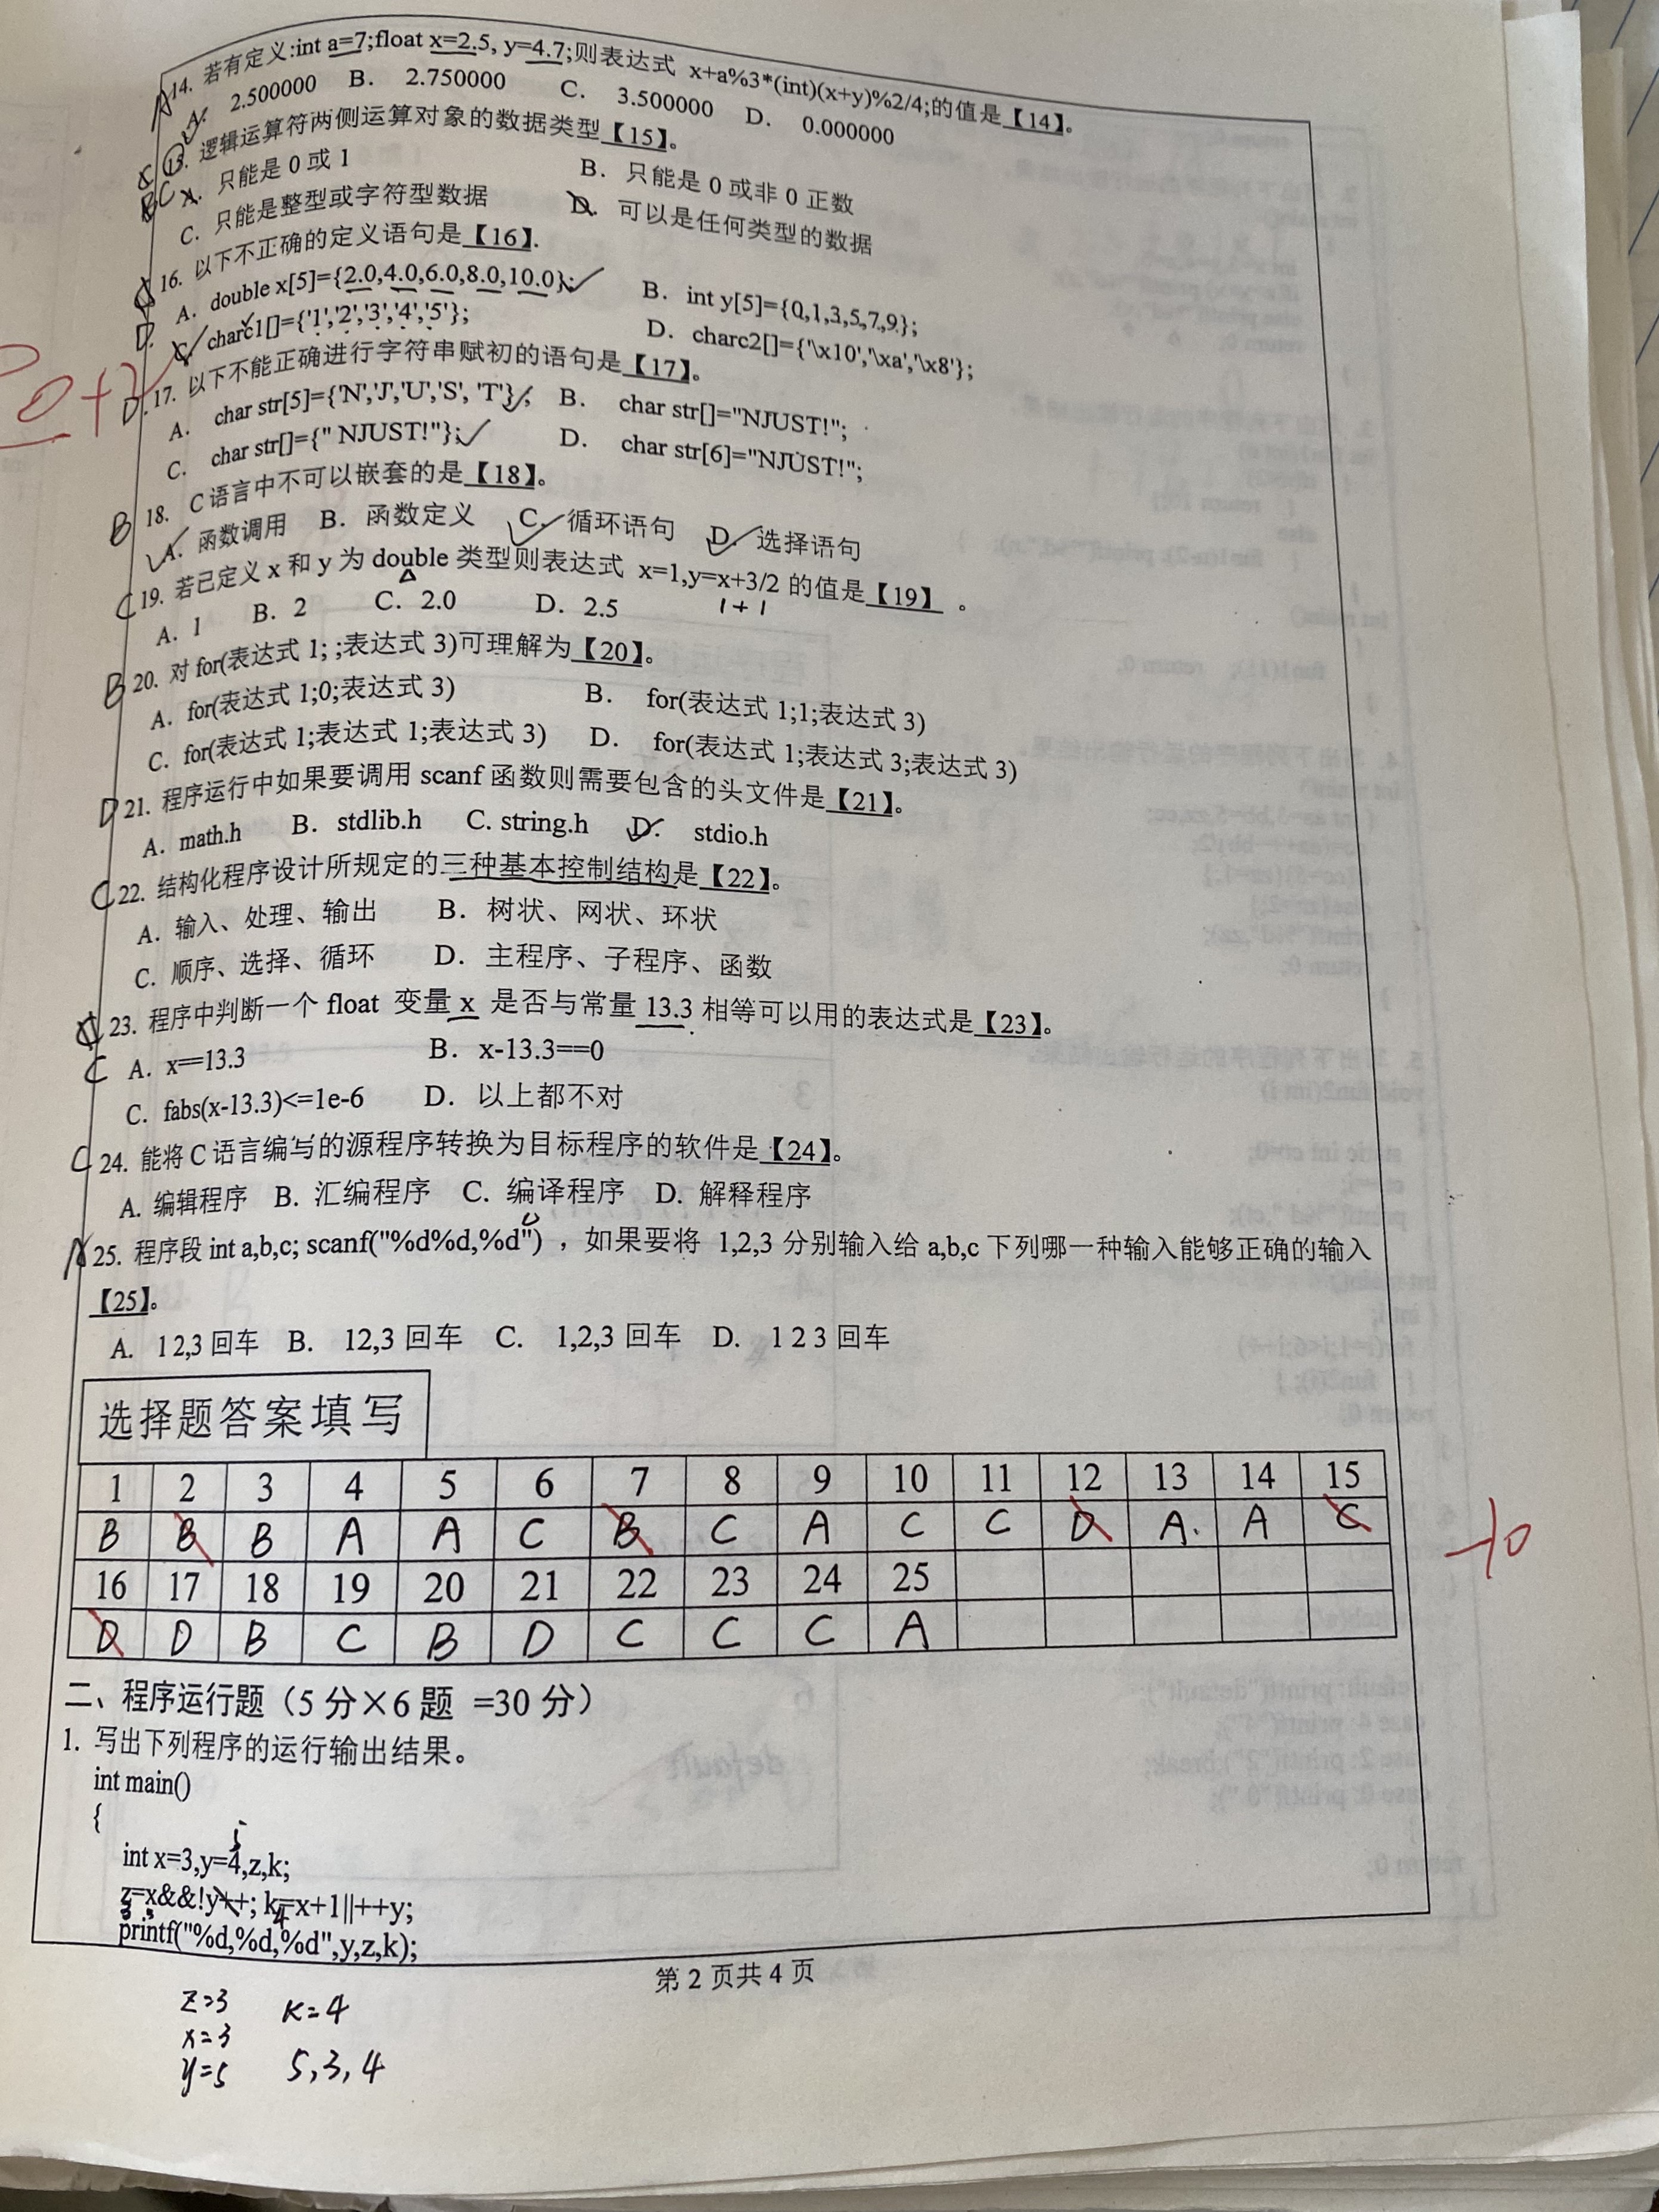 A 14. 若有定义:int a=7;float x=2.5, y=4.7;则表达式 x+a%3*(int)(x+y)%2/4;的值是【14】。
A. 2.500000 B. 2.750000 C. 3.500000 D. 0.000000
15. 逻辑运算符两侧运算对象的数据类型【15】。
A. 只能是 0 或 1 B. 只能是 0 或非 0 正数
C. 只能是整型或字符型数据 D. 可以是任何类型的数据
16. 以下不正确的定义语句是【16】.
A. double x[5]={2.0,4.0,6.0,8.0,10.0}; B. int y[5]={0,1,3,5,7,9};
D. C. charc1[]={'1','2','3','4','5'}; D. charc2[]={'\x10','\xa','\x8'};
D. 17. 以下不能正确进行字符串赋初的语句是【17】。
A. char str[5]={'N','J','U','S', 'T'}; B. char str[]="NJUST!";
C. char str[]={" NJUST!"}; D. char str[6]="NJUST!";
B 18. C 语言中不可以嵌套的是【18】。
A. 函数调用 B. 函数定义 C. 循环语句 D. 选择语句
C 19. 若已定义 x 和 y 为 double 类型则表达式 x=1,y=x+3/2 的值是【19】 。
1+1
A. 1 B. 2 C. 2.0 D. 2.5
B 20. 对 for(表达式 1; ;表达式 3)可理解为【20】。
A. for(表达式 1;0;表达式 3) B. for(表达式 1;1;表达式 3)
C. for(表达式 1;表达式 1;表达式 3) D. for(表达式 1;表达式 3;表达式 3)
D 21. 程序运行中如果要调用 scanf 函数则需要包含的头文件是【21】。
A. math.h B. stdlib.h C. string.h D. stdio.h
C 22. 结构化程序设计所规定的三种基本控制结构是【22】。
A. 输入、处理、输出 B. 树状、网状、环状
C. 顺序、选择、循环 D. 主程序、子程序、函数
23. 程序中判断一个 float 变量 x 是否与常量 13.3 相等可以用的表达式是【23】。
C A. x==13.3 B. x-13.3==0
C. fabs(x-13.3)<=1e-6 D. 以上都不对
C 24. 能将 C 语言编写的源程序转换为目标程序的软件是【24】。
A. 编辑程序 B. 汇编程序 C. 编译程序 D. 解释程序
A 25. 程序段 int a,b,c; scanf("%d%d,%d") ，如果要将 1,2,3 分别输入给 a,b,c 下列哪一种输入能够正确的输入
【25】。
A. 1 2,3 回车 B. 12,3 回车 C. 1,2,3 回车 D. 1 2 3 回车
选择题答案填写
1 2 3 4 5 6 7 8 9 10 11 12 13 14 15
B B B A A C B C A C C D A. A C
-10
16 17 18 19 20 21 22 23 24 25
D D B C B D C C C A
二、程序运行题（5 分×6 题 =30 分）
1. 写出下列程序的运行输出结果。
int main()
{
5
int x=3,y=4,z,k;
z=x&&!y++; k=x+1||++y;
3 3 4
printf("%d,%d,%d",y,z,k);
第 2 页共 4 页
z=3 K=4
x=3
y=5 5,3,4